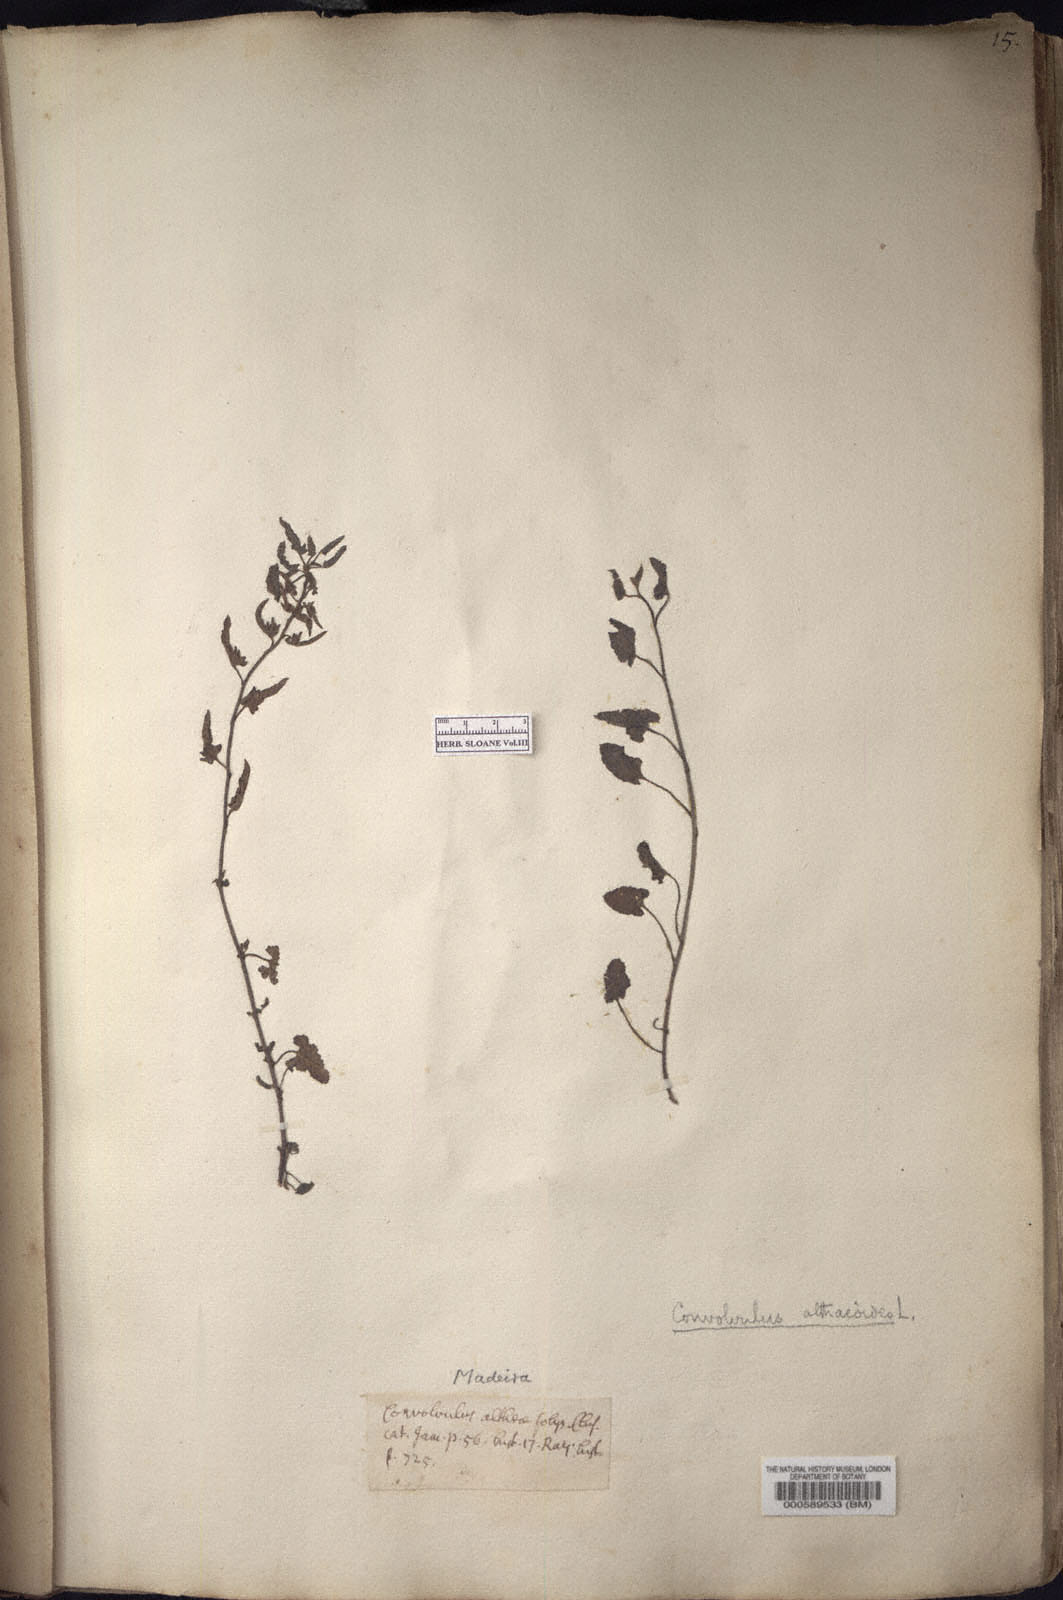 15.
mm 1 2 3
HERB. SLOANE Vol.III
Convolvulus althaeoides L.
Madeira
Convolvulus altheæ folijs. Clus.
cat. Jam. p. 56. hist. 17. Raij. hist.
p. 725.
THE NATURAL HISTORY MUSEUM, LONDON
DEPARTMENT OF BOTANY
000589533 (BM)